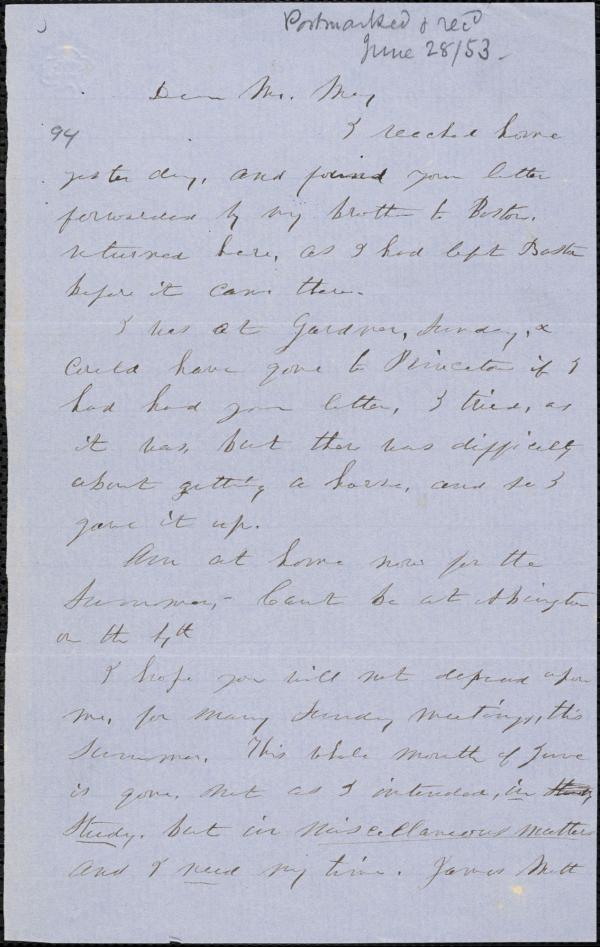 Postmarked & rec'd
June 28/53.
Dear Mr. May
94
I reached home
yesterday, and found your letter
forwarded by my brother to Boston,
returned here, as I had left Boston
before it came there.
I was at Gardner, Sunday, &
could have gone to Princeton if I
had had your letter, I tried, as
it was, but there was difficulty
about getting a horse, and so I
gave it up.
Am at home now for the
Summer,- Can't be at Abington
on the 4th
I hope you will not depend upon
me, for many Sunday meetings, this
Summer. This whole month of June
is gone, not as I intended, in Study
Study, but in miscellaneous matters
and I need my time. James Mott